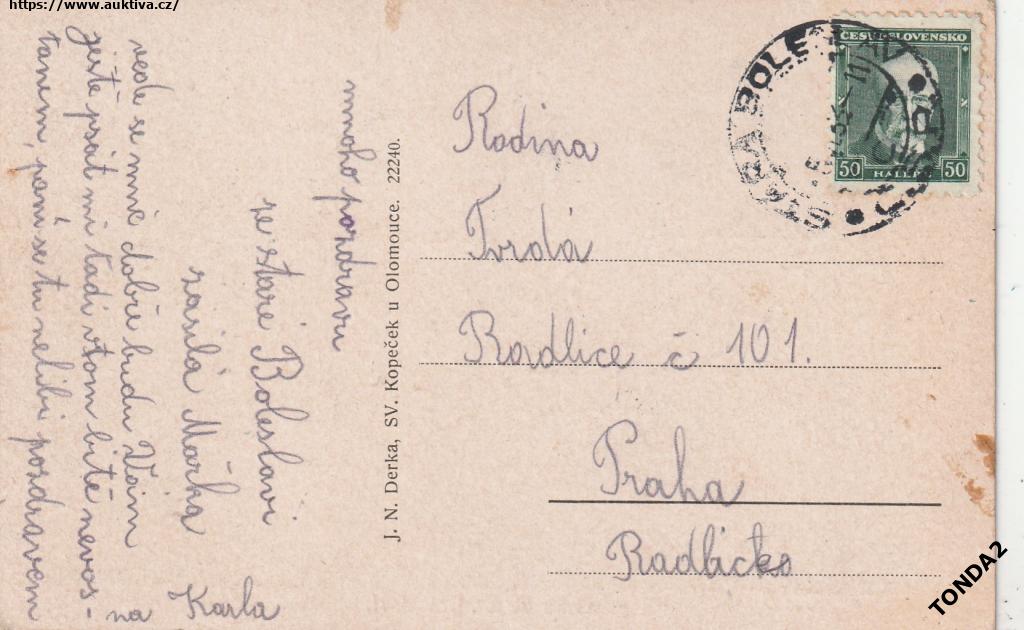 https://www.auktiva.cz/
mnoho pozdravu
ze staré Boleslavi
zasílá Mařka
Karla
vede se mně dobře budu Vám
ještě psát mi tadi vtom bitě nevos-
tanem, paní se tu nelibi pozdravem
na
J. N. Derka, SV. Kopeček u Olomouce. 22240.
Rodina
Tvrdá
Radlice č 101.
Praha
Radlicko
STARÁ BOLESLAV
ČESKOSLOVENSKO
50 HALÉŘŮ 50
TONDA2